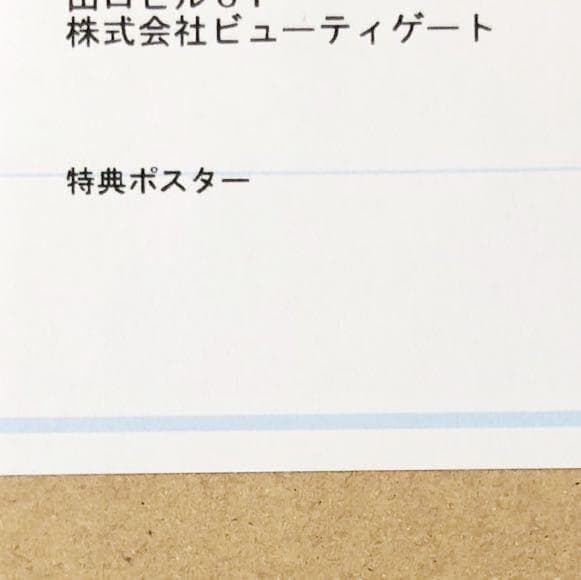 株式会社ビューティゲート
特典ポスター